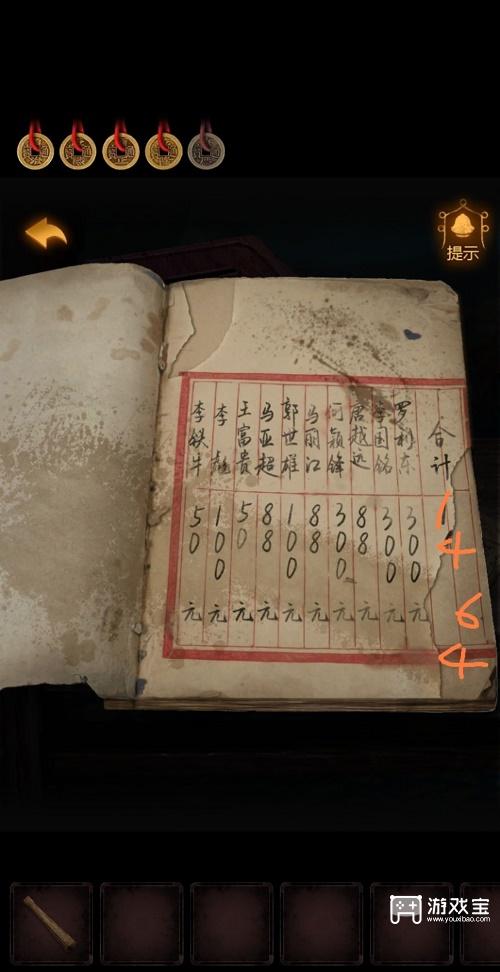 提示
合计 1464
罗利东 300元
国铭 300元
唐越远 88元
何颖锋 300元
马丽江 88元
郭世雄 100元
马亚超 88元
王富贵 50元
李彪 100元
李铁牛 50元
游戏宝
www.youxibao.com